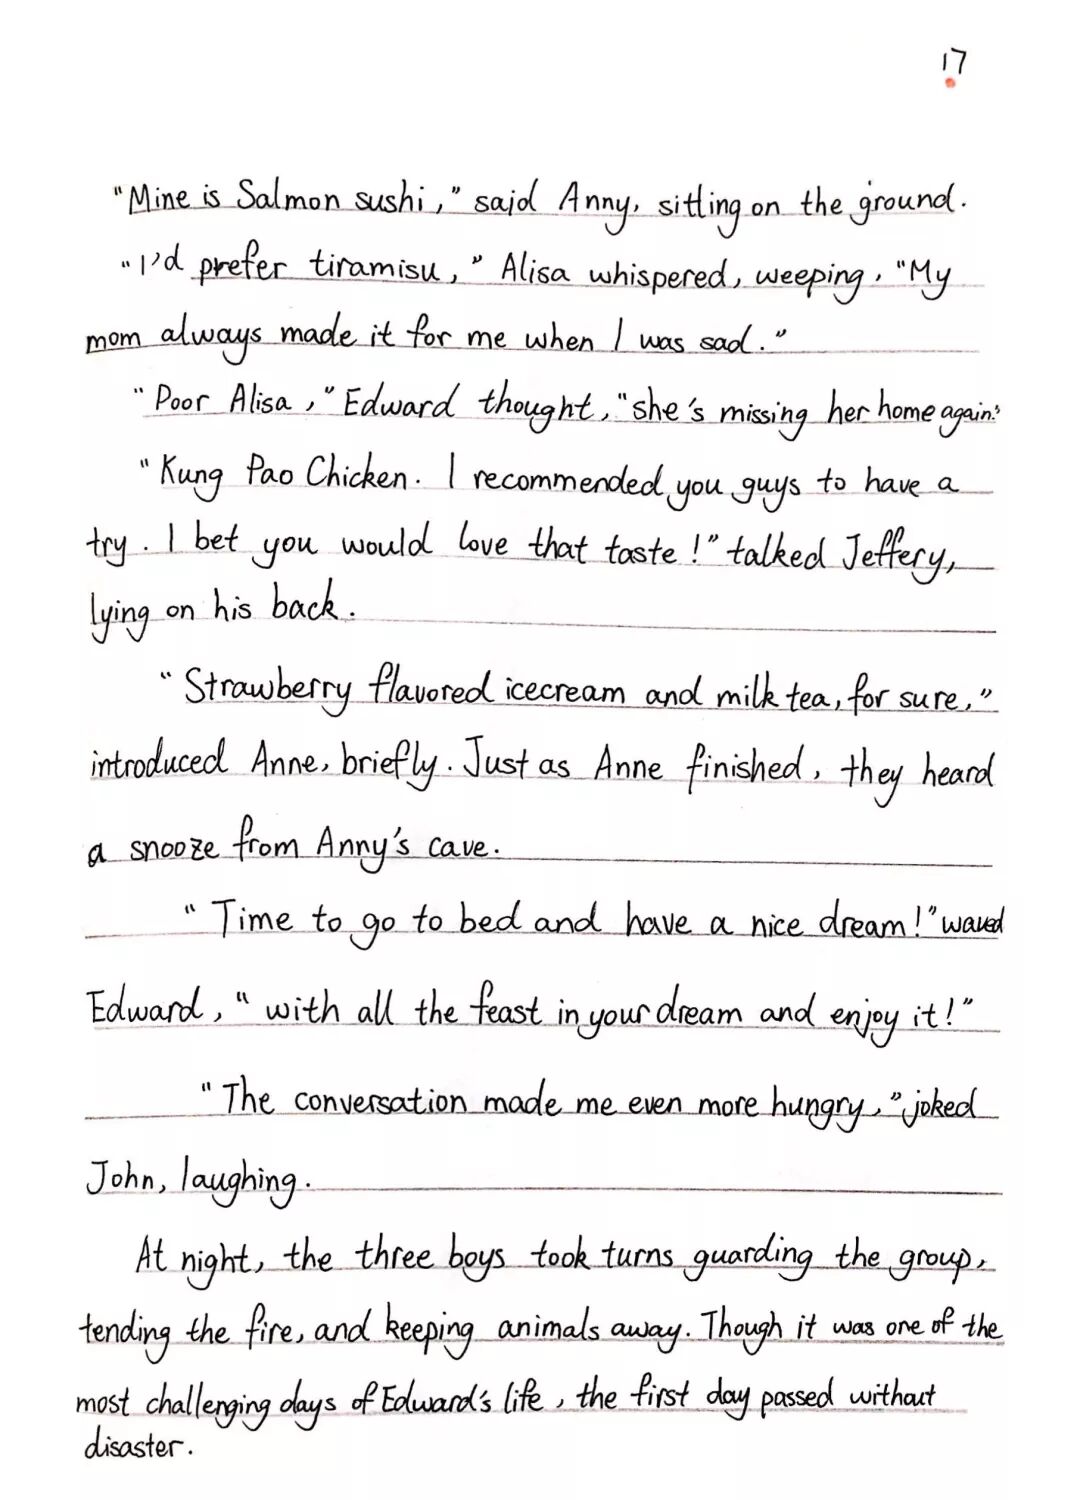 17
"Mine is Salmon sushi," said Anny, sitting on the ground.
"I'd prefer tiramisu," Alisa whispered, weeping, "My
mom always made it for me when I was sad."
"Poor Alisa," Edward thought, "she's missing her home again."
"Kung Pao Chicken. I recommended you guys to have a
try. I bet you would love that taste!" talked Jeffery,
lying on his back.
"Strawberry flavored icecream and milk tea, for sure,"
introduced Anne, briefly. Just as Anne finished, they heard
a snooze from Anny's cave.
"Time to go to bed and have a nice dream!" waved
Edward, "with all the feast in your dream and enjoy it!"
"The conversation made me even more hungry," joked
John, laughing.
At night, the three boys took turns guarding the group,
tending the fire, and keeping animals away. Though it was one of the
most challenging days of Edward's life, the first day passed without
disaster.